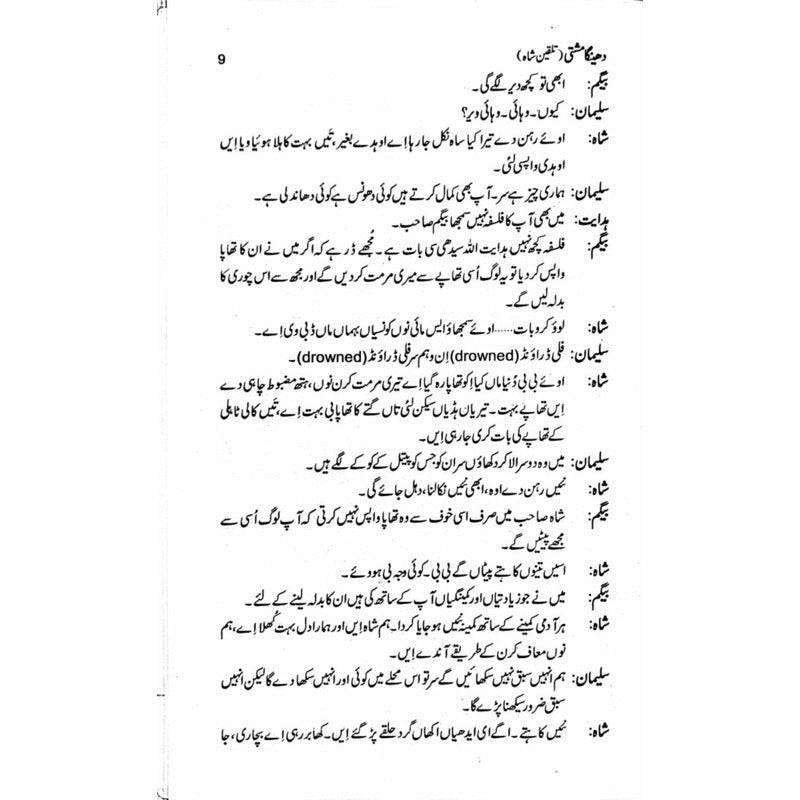 دھینگا مشتی (تلقین شاہ) 9
بیگم: ابھی تو کچھ دیر لگے گی۔
سلیمان: کیوں۔ وہائی۔ وہائی ویر؟
شاہ: اوئے رہن دے تیرا کیا ساہ نکل جا رہا اے اوہدے بغیر، تئیں بہت کاہلا ہوئیا ویا ایں
اوہدی واپسی لئی۔
سلیمان: ہماری چیز ہے سر۔ آپ بھی کمال کرتے ہیں کوئی دھونس ہے کوئی دھاندلی ہے۔
ہدایت: میں بھی آپ کا فلسفہ نہیں سمجھا بیگم صاحب۔
بیگم: فلسفہ کچھ نہیں ہدایت اللہ سیدھی سی بات ہے۔ مُجھے ڈر ہے کہ اگر میں نے ان کا تھاپا
واپس کر دیا تو یہ لوگ اُسی تھاپے سے میری مرمت کر دیں گے اور مجھ سے اس چوری کا
بدلہ لیں گے۔
شاہ: لوؤ کرو بات...... اوئے سمجھاؤ ایس مائی نوں کونسیاں بہماں ماں ڈبی وی اے۔
سلیمان: فلی ڈراؤنڈ (drowned) اِن وہم سر فلی ڈراؤنڈ (drowned)۔
شاہ: اوئے بی بی دُنیا ماں کیا اِکو تھاپا رہ گیا اے تیری مرمت کرن نوں، ہتھ مضبوط چاہی دے
ایں تھاپے بہت۔ تیریاں ہڈیاں سیکن لئی تاں گتے کا تھاپا بی بہت اے، تئیں کالی ٹاہلی
کے تھاپے کی بات کری جا رہی ایں۔
سلیمان: میں وہ دوسرا لا کر دکھاؤں سر ان کو جس کو پیتل کے کوکے لگے ہیں۔
شاہ: نئیں رہن دے اوہ، ابھی نئیں نکالنا، دہل جائے گی۔
بیگم: شاہ صاحب میں صرف اسی خوف سے وہ تھاپا واپس نہیں کرتی کہ آپ لوگ اُسی سے
مجھے پیٹیں گے۔
شاہ: اسیں تینوں کاہتے پیٹاں گے بی بی۔ کوئی وجہ بی ہووئے۔
بیگم: میں نے جو زیادتیاں اور کمینگیاں آپ کے ساتھ کی ہیں ان کا بدلہ لینے کے لئے۔
شاہ: ہر آدمی کمینے کے ساتھ کمینہ نئیں ہو جایا کردا۔ ہم شاہ ایں اور ہمارا دل بہت کُھلا اے، ہم
نوں معاف کرن کے طریقے آندے ایں۔
سلیمان: ہم انہیں سبق نہیں سکھائیں گے سر تو اس محلے میں کوئی اور انہیں سکھا دے گا لیکن انہیں
سبق ضرور سیکھنا پڑے گا۔
شاہ: نئیں کاہتے۔ اگے ای ایدھیاں اکھاں گرد حلقے پڑ گئے ایں۔ گھابر رہی اے بچاری، جا